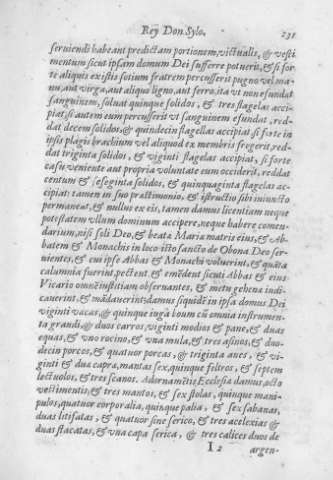 Rey Don Sylo. 231
seruiendi habeant predictam portionem, victualis, & vesti
mentum sicut ipsam domum Dei sufferre potuerit, & si for
te aliquis ex istis sotium fratrem percusserit pugno vel ma-
nu, aut virga, aut aliquo ligno, aut ferro, ita vt non efundat
sanguinem, soluat quinque solidos, & tres flagelas acci-
piat, si autem eum percusserit vt sanguinem efundat, red-
dat decem solidos, & quindecim flagellas accipiat si forte in
ipsis plagis brachium vel aliquod ex membris fregerit, red-
dat triginta solidos, & viginti flagelas accipiat, si forte
casu veniente aut propria voluntate eum occiderit, reddat
centum & sesaginta solidos, & quinquaginta flagelas ac-
cipiat: tamen in suo prastimonio, & istructio sibi iniuncto
permaneat, & nullus ex eis, tamen damus licentiam neque
potestatem vllum dominum accipere, neque habere comen-
darium, nisi soli Deo, & beata Maria matris eius, & Ab-
batem & Monachis in loco isto sancto de Obona Deo ser-
uientes, & cui ipse Abbas & Monachi voluerint, & quāta
calumnia fuerint, pectent & emēdent sicuti Abbas & eius
Vicario omnē institiam obseruantes, & metu gehene indi-
cauerint, & mādauerint; damus siquidē in ipsa domus Dei
viginti vacas, & quinque iuga boum cū omnia instrumen-
ta grandi, & duos carros, viginti modios & pane, & duas
equas, & vno rocino, & vna mula, & tres asinos, & duo-
decin porcos, & quatuor porcas, & triginta oues, & vi-
ginti & dua capra, mantas sex, quinque filtros, & septem
lectuolos, & tres scanos. Adornamētis Ecclesia damus octo
vestimentis, & tres mantos, & sex stolas, quinque mani-
pulos, quatuor corporalia, quinque palia, & sex sabanas,
duas litifatas, & quatuor sine serico, & tres acelexias &
duas stacatas, & vna capa serica, & tres calices duos de
I 2 argen-